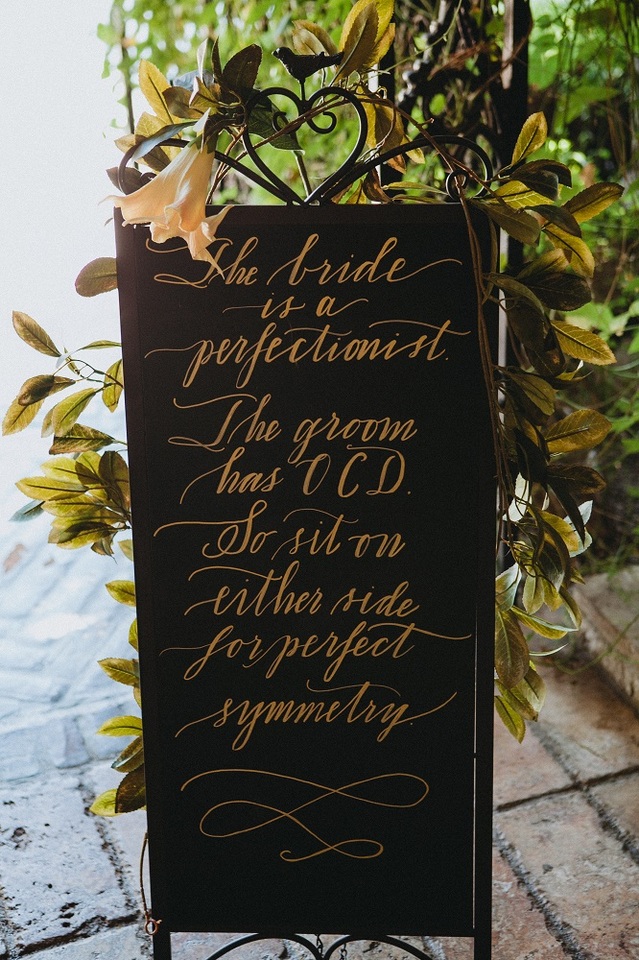 The bride
is a
perfectionist.
The groom
has OCD.
So sit on
either side
for perfect
symmetry.